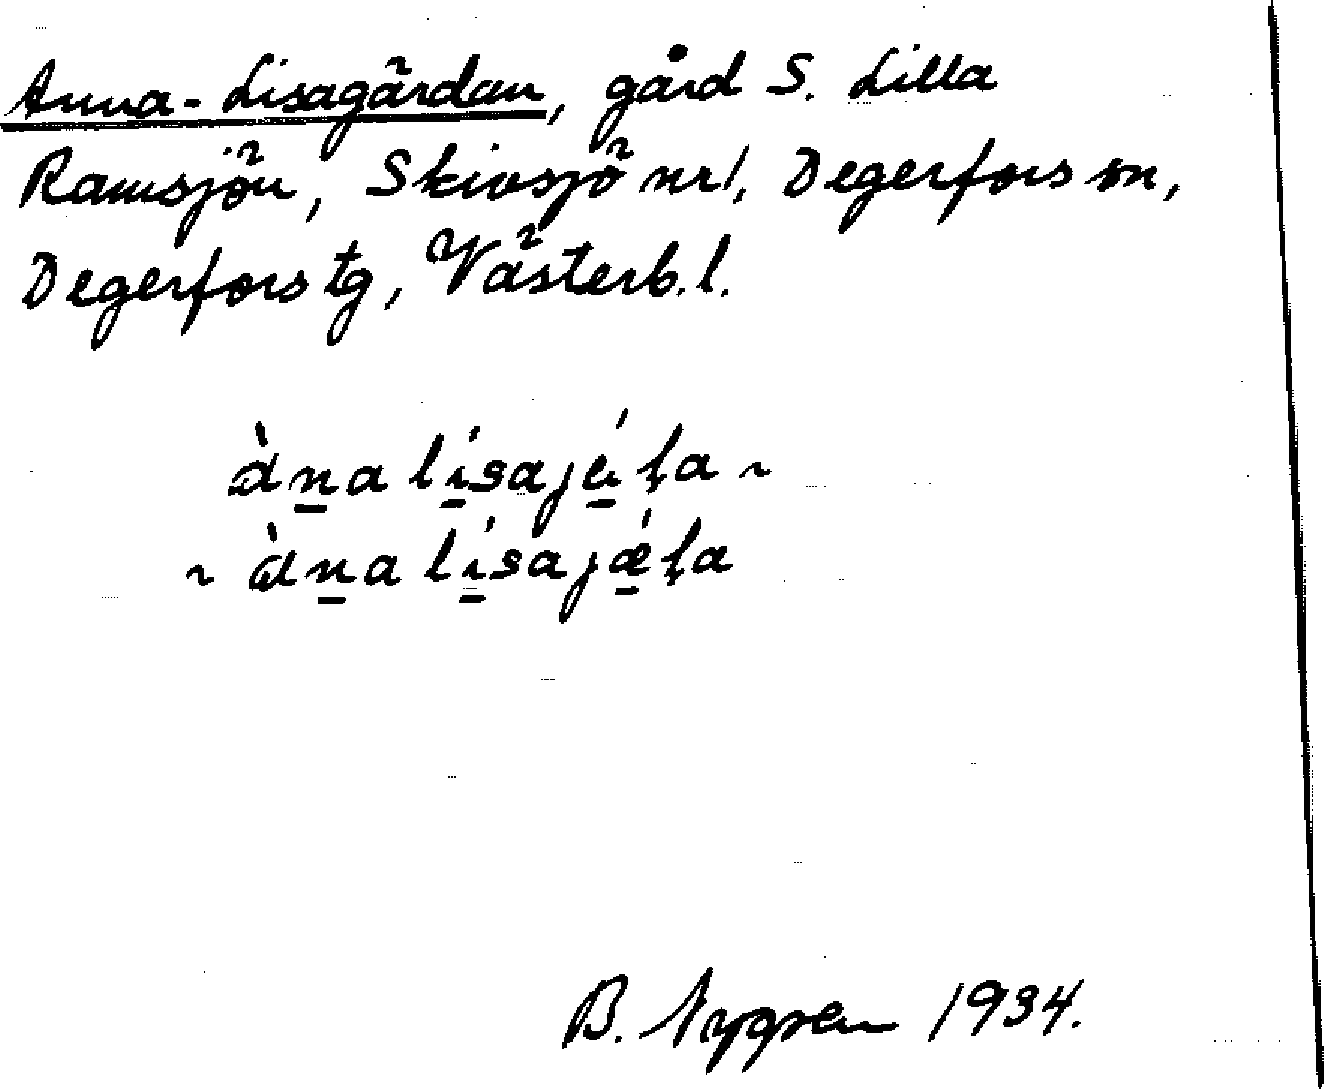 Anna-Lisagårdan, gård S. Lilla
Ramsjön, Skivsjö nr 1, Degerfors sn,
Degerfors tg, Västerb. l.
àn̠a lí̠sajé̠ḷa ~
~ àn̠a lí̠sajǽ̠ḷa
B. Nygren 1934.